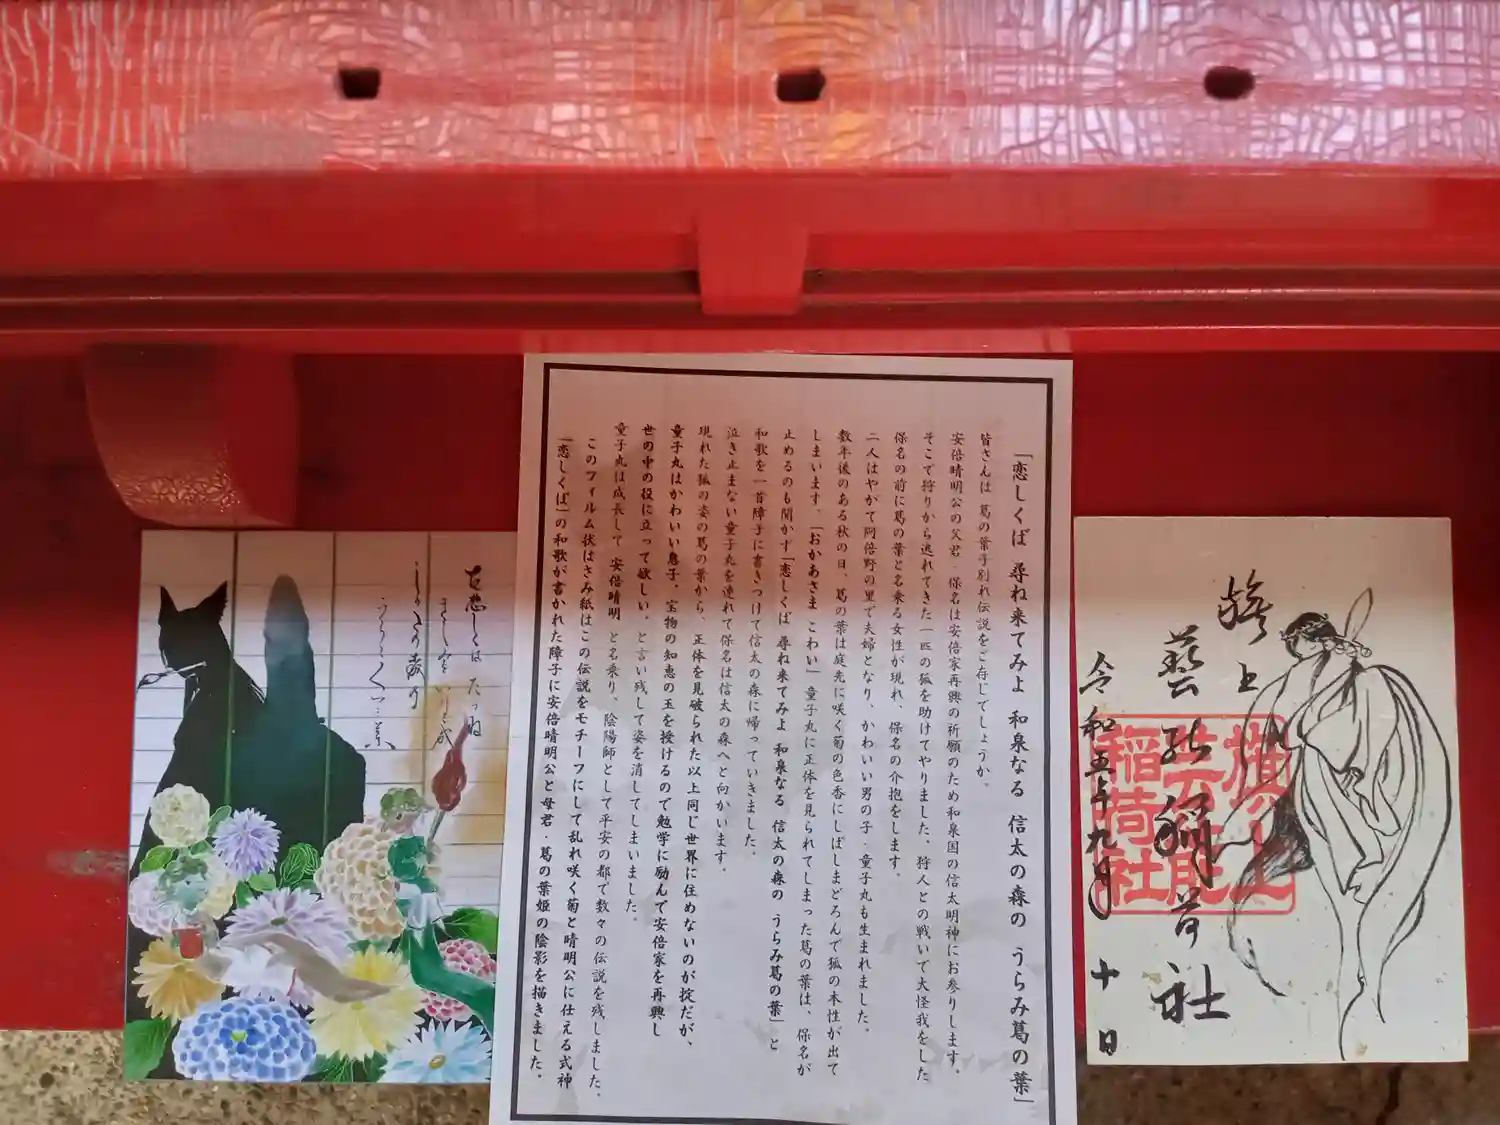 「恋しくば 尋ね来てみよ 和泉なる 信太の森の うらみ葛の葉」
皆さんは 葛の葉子別れ伝説をご存じでしょうか。
安倍晴明公の父君・保名は安倍家再興の祈願のため和泉国の信太明神にお参りします。
そこで狩りから逃れてきた一匹の狐を助けてやりました、狩人との戦いで大怪我をした
保名の前に葛の葉と名乗る女性が現れ、保名の介抱をします。
二人はやがて阿倍野の里で夫婦となり、かわいい男の子・童子丸も生まれました。
数年後のある秋の日、葛の葉は庭先に咲く菊の色香にしばしまどろんで狐の本性が出て
しまいます、「おかあさま こわい」童子丸に正体を見られてしまった葛の葉は、保名が
止めるのも聞かず「恋しくば 尋ね来てみよ 和泉なる 信太の森の うらみ葛の葉」と
和歌を一首障子に書きつけて信太の森に帰っていきました。
泣き止まない童子丸を連れて保名は信太の森へと向かいます。
現れた狐の姿の葛の葉から、正体を見破られた以上同じ世界に住めないのが掟だが、
童子丸はかわいい息子。宝物の知恵の玉を授けるので勉学に励んで安倍家を再興し
世の中の役に立って欲しい、と言い残して姿を消してしまいました。
童子丸は成長して 安倍晴明 と名乗り、陰陽師として平安の都で数々の伝説を残しました。
このフィルム状はさみ紙はこの伝説をモチーフにして乱れ咲く菊と晴明公に仕える式神
「恋しくば」の和歌が書かれた障子に安倍晴明公と母君・葛の葉姫の陰影を描きました。
旗上
芸能稲荷社
令和五年九月十日
旗上
芸能
稲荷社